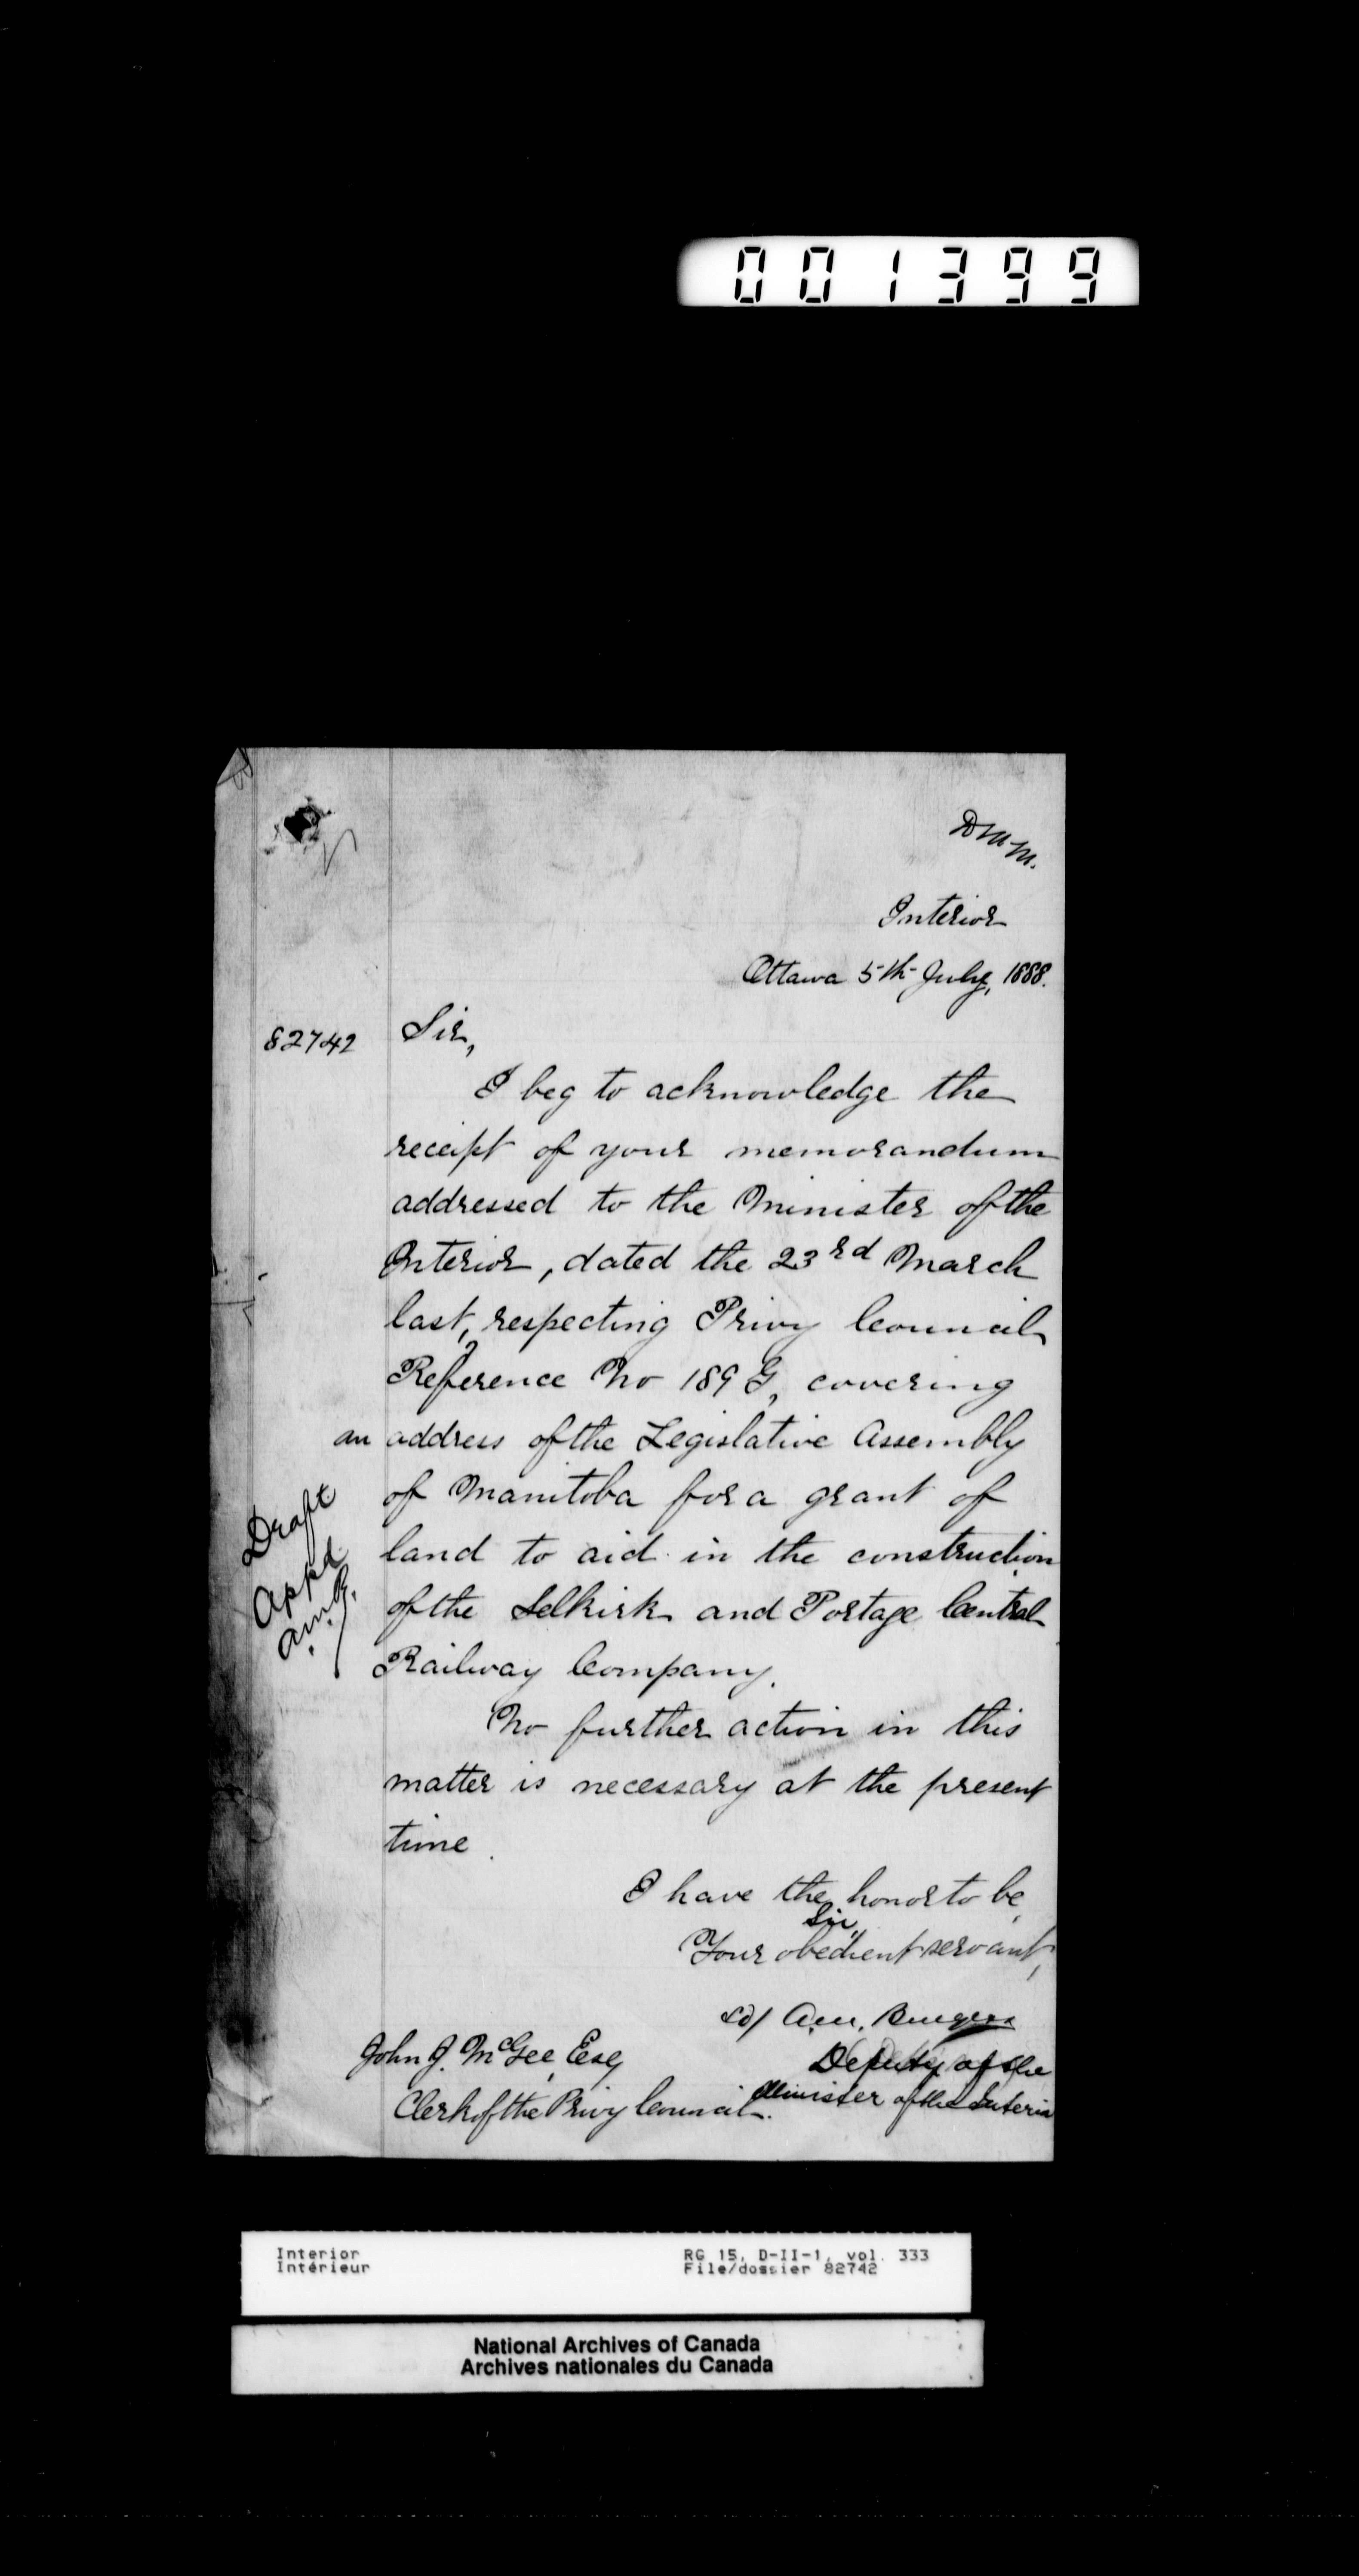 001399
DMM.
Interior
Ottawa 5th July, 1888.
82742
Sir,
I beg to acknowledge the
receipt of your memorandum
addressed to the Minister of the
Interior, dated the 23rd March
last, respecting Privy Council
Reference No 189 G, covering
an address of the Legislative Assembly
of Manitoba for a grant of
land to aid in the construction
of the Selkirk and Portage Central
Railway Company.
Draft
Appd
A.M.B.
No further action in this
matter is necessary at the present
time.
I have the honor to be,
Sir,
Your obedient servant,
sd/ A.M. Burgess
Deputy of the
Minister of the Interior
John J. McGee, Esq
Clerk of the Privy Council.
Interior
Intérieur
RG 15, D-II-1, vol. 333
File/dossier 82742
National Archives of Canada
Archives nationales du Canada